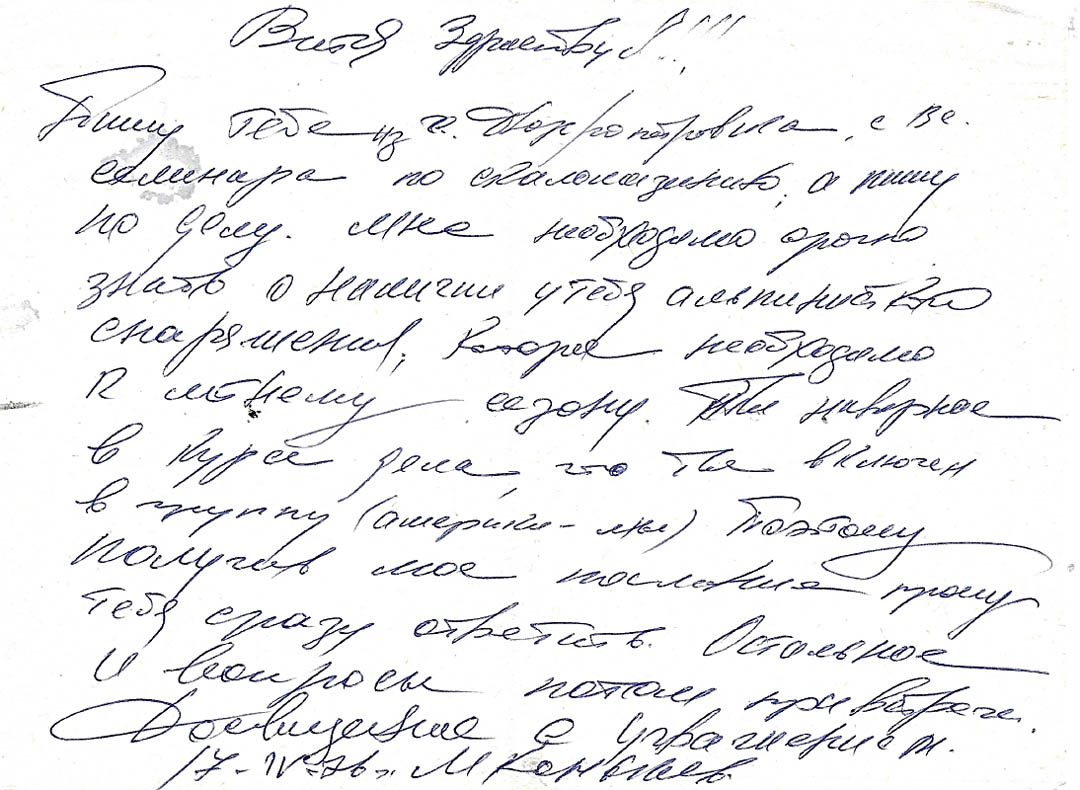 Витя Здраствуй!!!
Пишу тебе из г. Днепропетровска, с Вс.
семинара по скалолазанию, а пишу
по делу. Мне необходимо срочно
знать о наличии у тебя альпинистского
снаряжения, которое необходимо
к летнему сезону. Ты наверное
в курсе дела, что ты включен
в группу (америка - мы) Поэтому
получив мое послание прошу
тебя сразу ответить. Остальное
и вопросы потом при встрече.
Досвидание с уважением.
17-IV-76г.